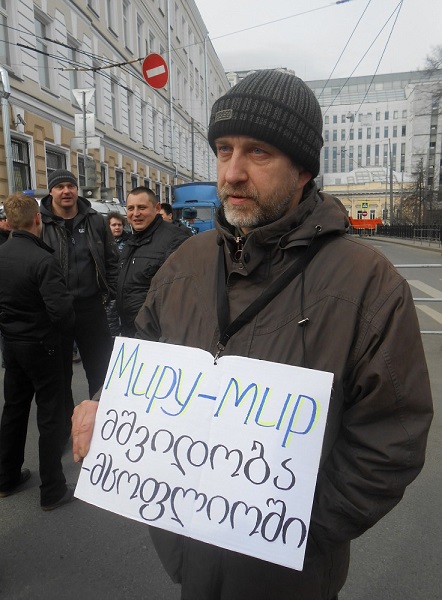 Миру-мир
მშვიდობა
-მსოფლიოში